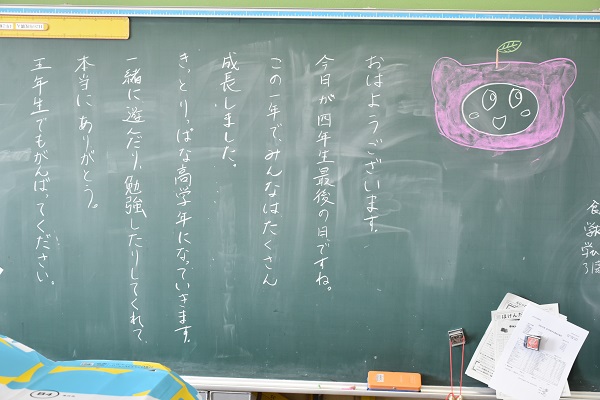 おはようございます。
今日が四年生最後の日ですね。
この一年で、みんなはたくさん
成長しました。
きっとりっぱな高学年になっていきます。
一緒に遊んだり、勉強したりしてくれて、
本当に、ありがとう。
五年生でもがんばってください。